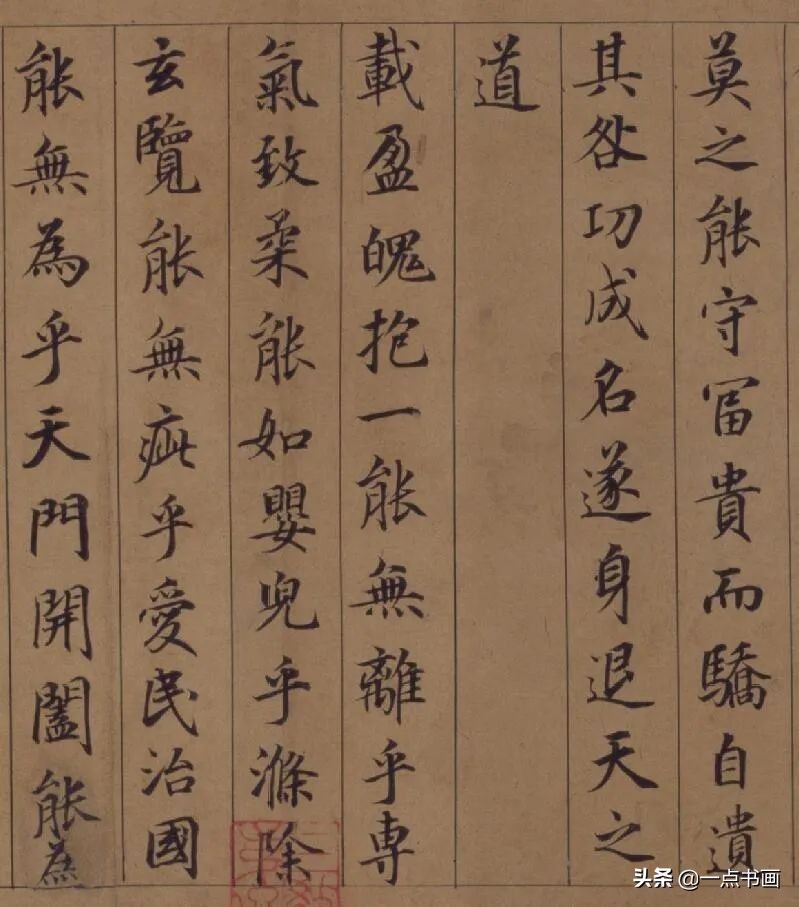 莫之能守冨貴而驕自遺
其咎功成名遂身退天之
道
載盈魄抱一能無離乎専
氣致柔能如嬰兒乎滌除
玄覽能無疵乎愛民治國
能無為乎天門開闔能為
头条 @一点书画